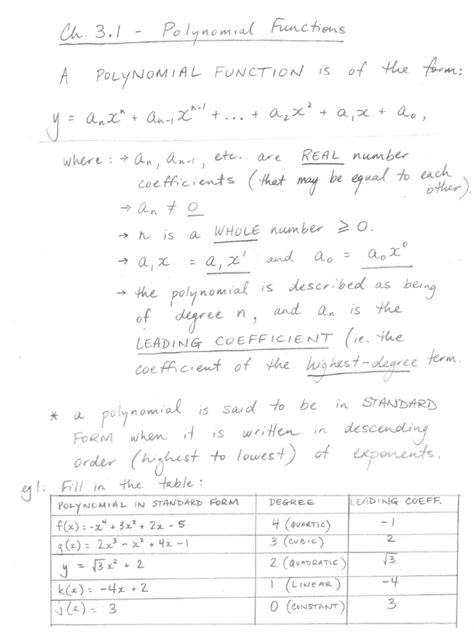 Ch. 3.1 - Polynomial Functions
A POLYNOMIAL FUNCTION is of the form:
y = aₙxⁿ + aₙ₋₁xⁿ⁻¹ + ... + a₂x² + a₁x + a₀,
where: → aₙ, aₙ₋₁, etc. are REAL number
coefficients (that may be equal to each
other).
→ aₙ ≠ 0
→ n is a WHOLE number ≥ 0.
→ a₁x = a₁x¹ and a₀ = a₀x⁰
→ the polynomial is described as being
of degree n, and aₙ is the
LEADING COEFFICIENT (ie. the
coefficient of the highest-degree term.
* a polynomial is said to be in STANDARD
FORM when it is written in descending
order (highest to lowest) of exponents.
eg1. Fill in the table:
POLYNOMIAL IN STANDARD FORM DEGREE LEADING COEFF.
f(x) = -x⁴ + 3x² + 2x - 5 4 (QUARTIC) -1
g(x) = 2x³ - x² + 4x - 1 3 (CUBIC) 2
y = √3x² + 2 2 (QUADRATIC) √3
k(x) = -4x + 2 1 (LINEAR) -4
j(x) = 3 0 (CONSTANT) 3